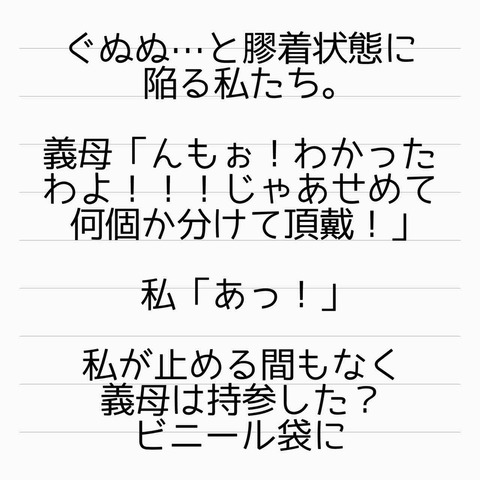 ぐぬぬ…と膠着状態に
陥る私たち。
義母「んもぉ！わかった
わよ！！！じゃあせめて
何個か分けて頂戴！」
私「あっ！」
私が止める間もなく
義母は持参した？
ビニール袋に